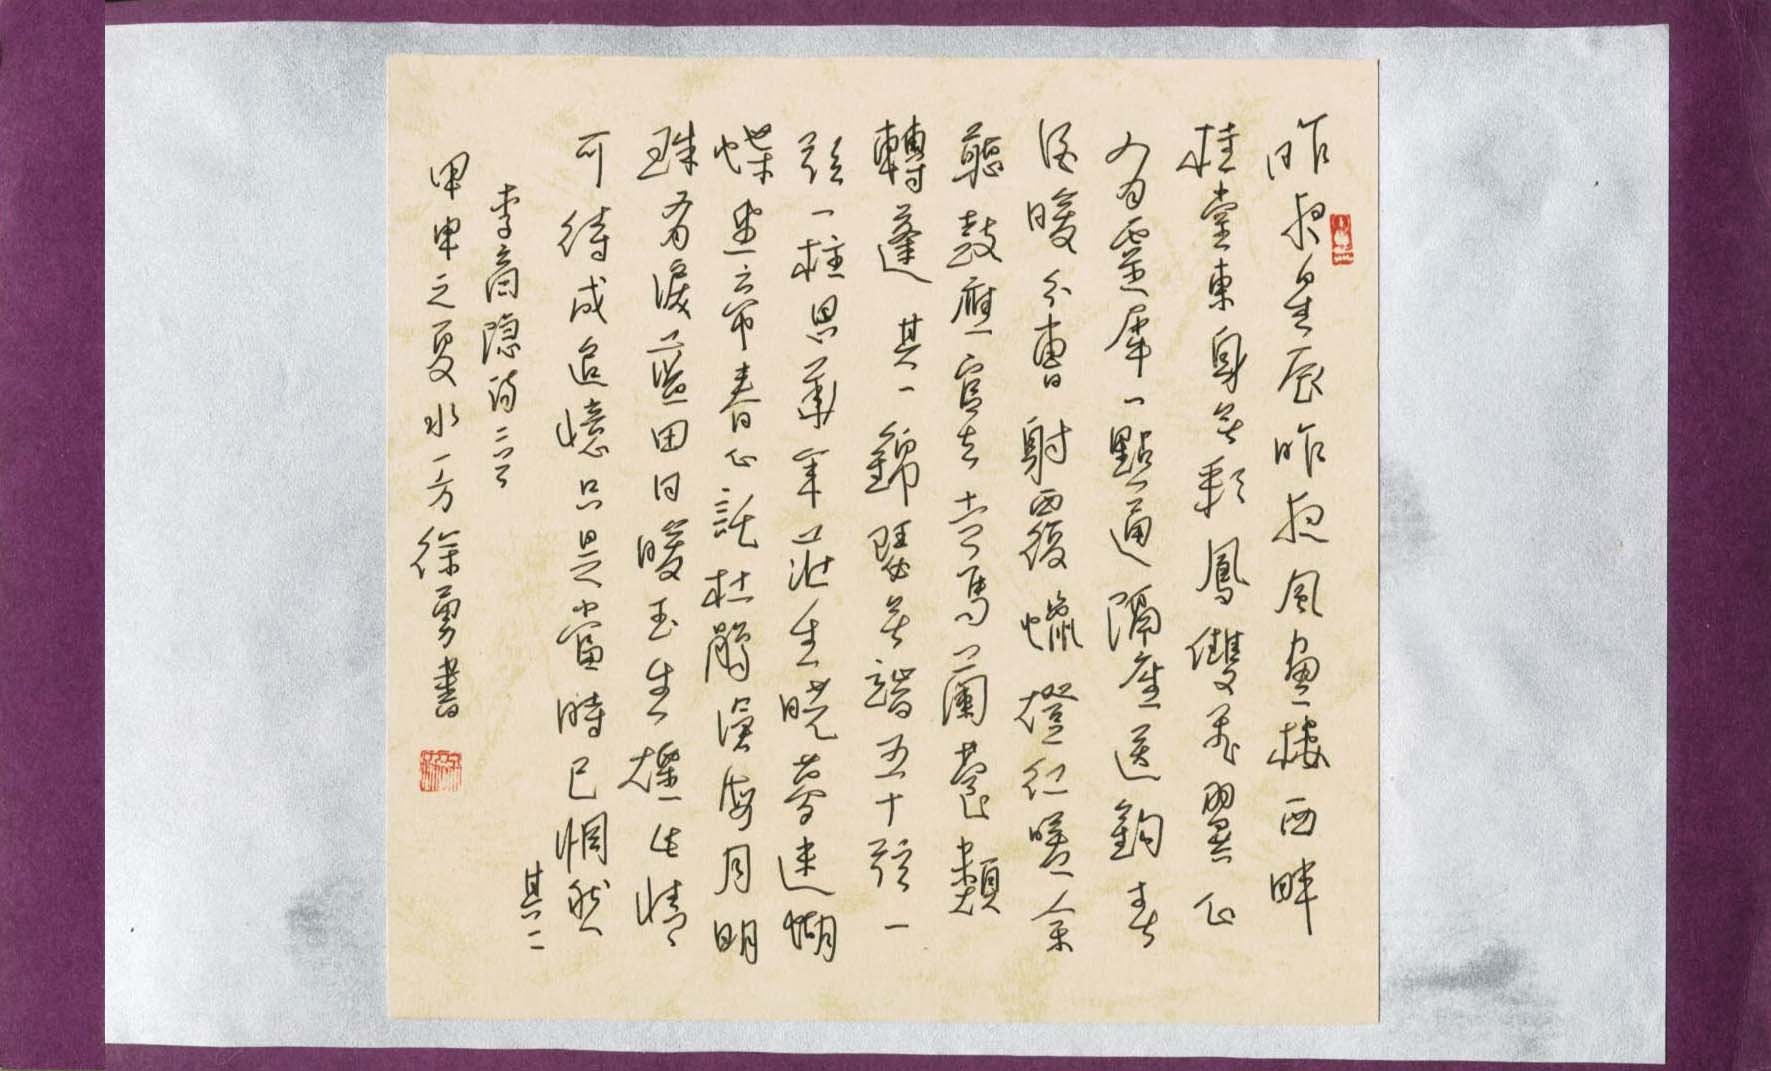 昨夜星辰昨夜風畫樓西畔
桂堂東身無彩鳳雙飛翼心
有靈犀一點通隔座送鉤春
酒暖分曹射覆蠟燈紅嗟余
聽鼓應官去走馬蘭臺類
轉蓬 其一 錦瑟無端五十弦一
弦一柱思華年莊生曉夢迷蝴
蝶望帝春心託杜鵑滄海月明
珠有淚藍田日暖玉生煙此情
可待成追憶只是當時已惘然
其二
李商隱詩二首
甲申之夏水一方徐勇書